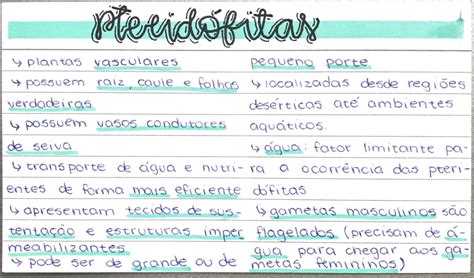 pteridófitas
↳ plantas vasculares
↳ possuem raiz, caule e folhas
verdadeiras
↳ possuem vasos condutores
de seiva
↳ transporte de água e nutri-
entes de forma mais eficiente
↳ apresentam tecidos de sus-
tentação e estruturas imper
meabilizantes
↳ pode ser de grande ou de
pequeno porte
↳ localizadas desde regiões
desérticas até ambientes
aquáticos.
↳ água: fator limitante pa-
ra a ocorrência das pteri
dófitas
↳ gametas masculinos são
flagelados (precisam de á-
gua para chegar aos ga-
metas femininos)